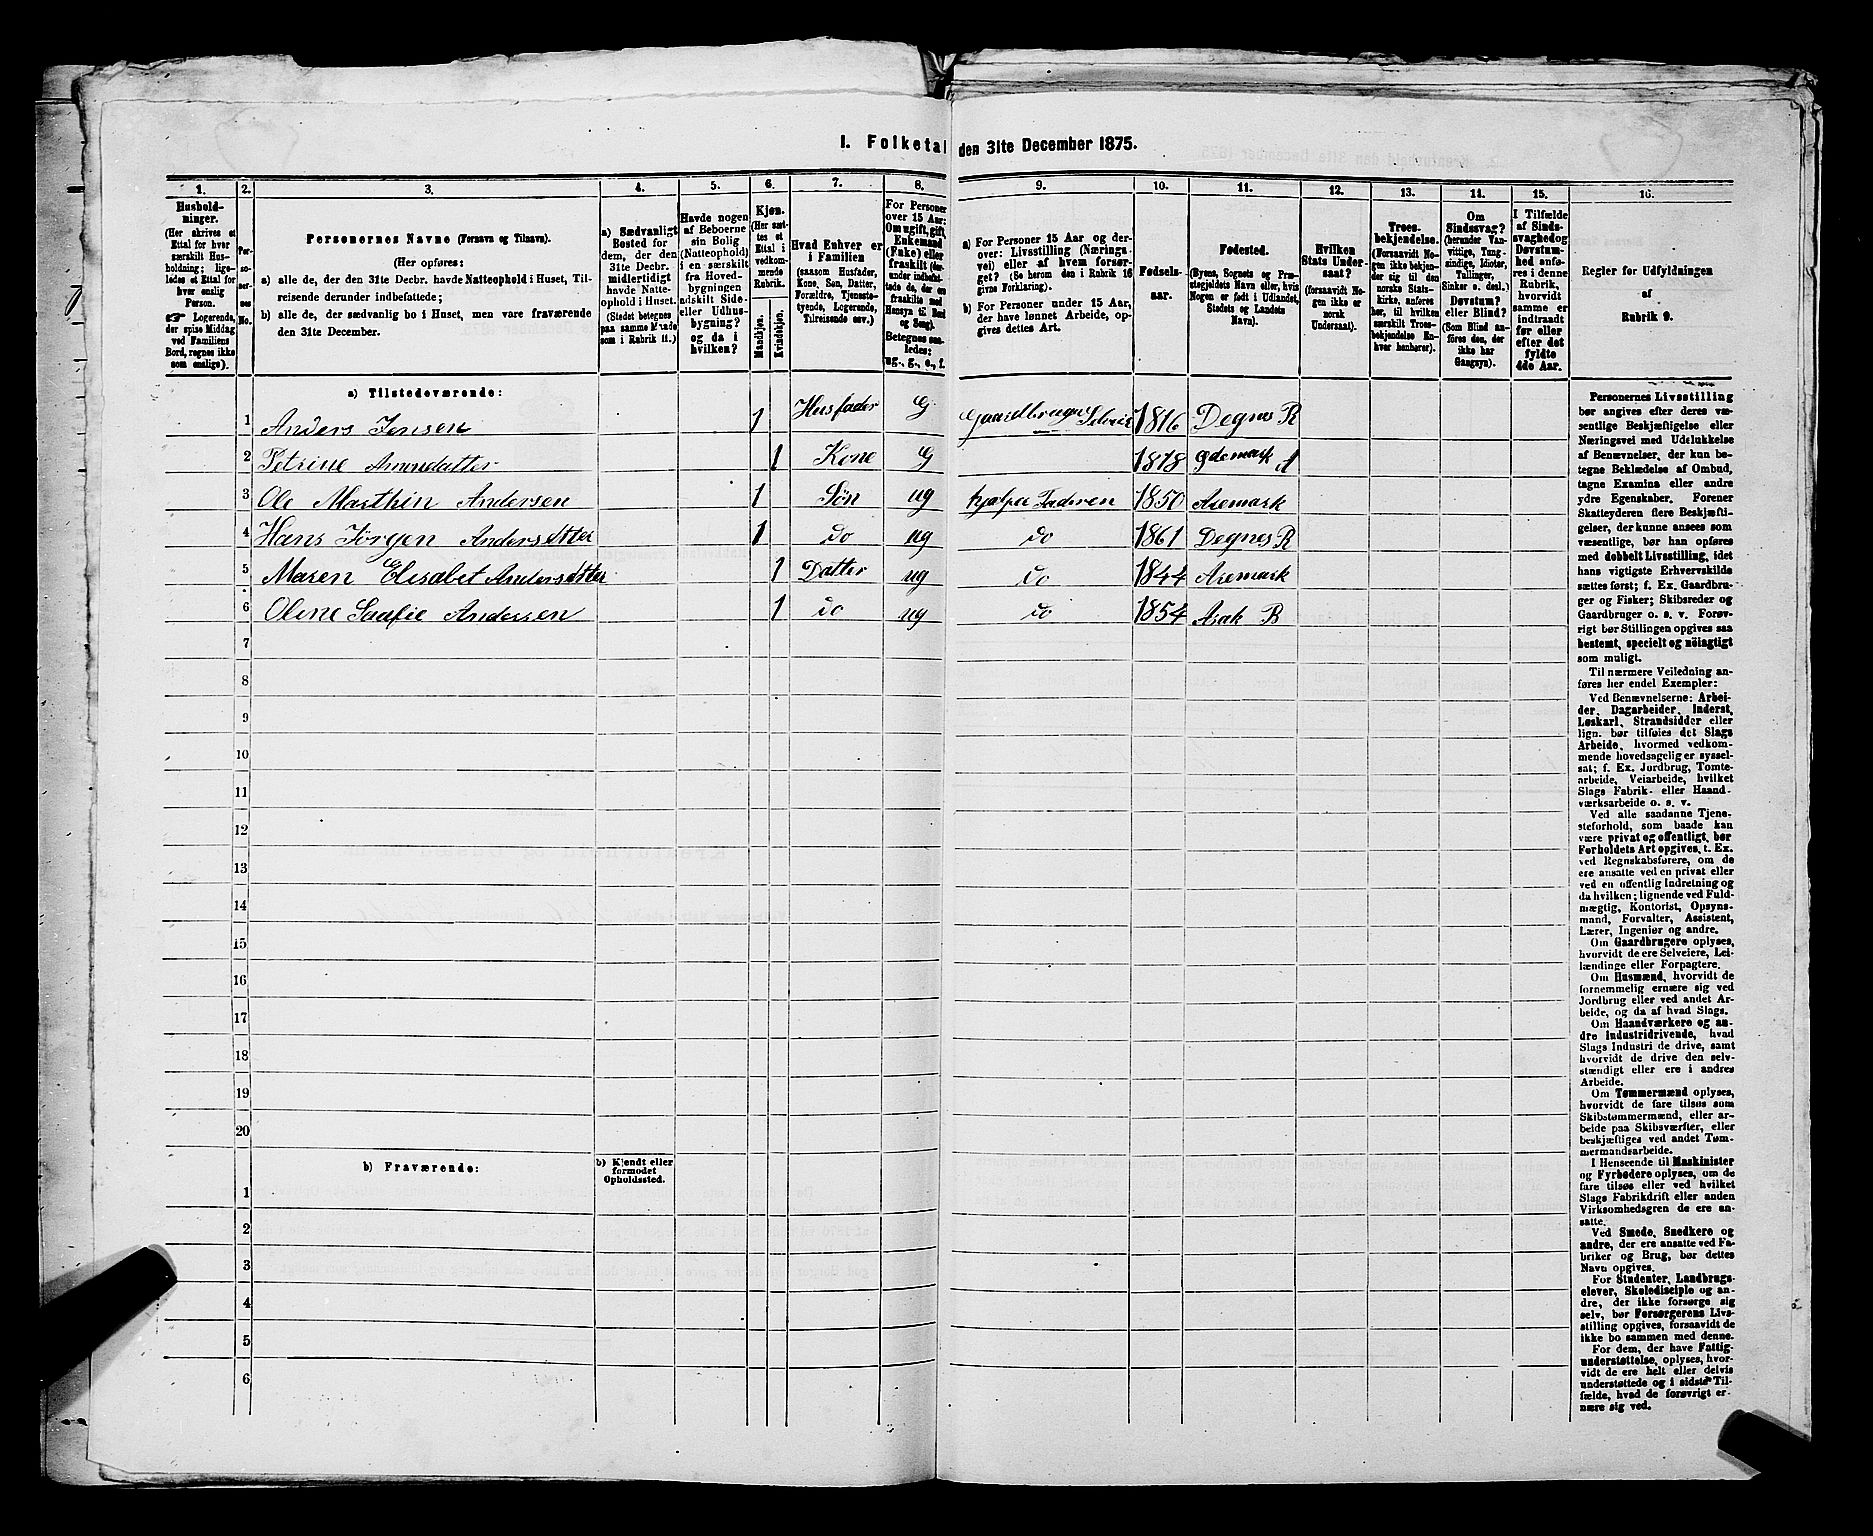 I. Folketal den 31te December 1875.
1. 2. 3. 4. 5. 6. 7. 8. 9. 10. 11. 12. 13. 14. 15. 16.
Hushold-
ninger.
(Her skrives et
Ettal for hver
særskilt Hus-
holdning; lige-
ledes et Ettal for
hver enslig
Person.
☞ Logerende,
der spise Middag
ved Familiens
Bord, regnes ikke
som enslige).
Per-
soner-
nes
No.
Personernes Navne (Fornavn og Tilnavn).
(Her opføres:
a) alle de, der den 31te Decbr. havde Natteophold i Huset, Til-
reisende derunder indbefattede;
b) alle de, der sædvanlig bo i Huset, men vare fraværende
den 31te December.
a) Sædvanligt
Bosted for
dem, der den
31te Decbr.
midlertidigt
havde Natte-
ophold i Huset.
(Stedet betegnes
paa samme Maade
som i Rubrik 11.)
Havde nogen
af Beboerne
sin Bolig
(Natteophold)
i en særskilt
fra Hoved-
bygningen
adskilt Side-
eller Udhus-
bygning?
og da i
hvilken?
Kjøn.
(Her sæt-
tes et
Ettal i
vedkom-
mende
Rubrik.
Mandkjøn.
Kvindekjøn.
Hvad Enhver er
i Familien
(saasom Husfader,
Kone, Søn, Datter,
Forældre, Tjeneste-
tyende, Logerende,
Tilreisende osv.)
For Personer
over 15 Aar:
Om ugift, gift,
Enkemand
(Enke) eller
fraskilt (der-
under indbefat-
tede de, der ere
fraskilte med
Hensyn til Bord
og Seng).
Betegnes saa-
ledes:
ug., g., e., f.
a) For Personer 15 Aar og der-
over: Livsstilling (Nærings-
vei) eller af hvem forsør-
get? (Se herom den i Rubrik 16
givne Forklaring).
b) For Personer under 15 Aar,
der have lønnet Arbeide, op-
gives dettes Art.
Fødsels-
aar.
Fødested.
(Byens, Sognets og Præ-
stegjeldets Navn eller, hvis
Nogen er født i Udlandet,
Stedets og Landets
Navn).
Hvilken
Stats Under-
saat?
(forsaavidt No-
gen ikke er
norsk
Undersaat).
Troes-
bekjendelse.
(Forsaavidt No-
gen ikke bekjen-
der sig til den
norske Stats-
kirke, anføres
her, til hvilken
særskilt Troes-
bekjendelse En-
hver henhører).
Om
Sindssvag?
(herunder Van-
vittige, Tung-
sindige, Idioter,
Tullinger,
Sinker o. desl.)
Døvstum?
eller Blind?
(Som Blind an-
føres den, der
ikke har
Gangsyn).
I Tilfælde
af Sinds-
svaghed og
Døvstum-
hed anfø-
res i denne
Rubrik,
hvorvidt
samme er
indtraadt
før eller
efter det
fyldte
4de Aar.
Regler for Udfyldningen
af
Rubrik 9.
a) Tilstedeværende:
1 Anders Jensen 1 Husfader G Gaardbruger Selveier 1816 Degnes R
2 Petrine Amundatter 1 Kone G 1818 Ødemark A
3 Ole Marthin Andersen 1 Søn ug hjælper Faderen 1850 Aremark
4 Hans Jørgen Andersdtter 1 do ug do 1861 Degnes R
5 Maren Elisabet Andersdtter 1 Datter ug do 1844 Aremark
6 Oline Saafie Andersen 1 do ug do 1854 Asak B
7
8
9
10
11
12
13
14
15
16
17
18
19
20
b) Fraværende:
b) Kjendt eller
formodet
Opholdssted.
1
2
3
4
5
6
Personernes Livsstilling
bør angives efter deres væ-
sentlige Beskjæftigelse eller
Næringsvei med Udelukkelse
af Benævnelser, der kun be-
tegne Beklædelse af Ombud,
tagne Examina eller andre
ydre Egenskaber. Forener
Skatteyderen flere Beskjæfti-
gelser, der kunne ansees som
væsentlige, bør han opføres
med dobbelt Livsstilling, idet
hans vigtigste Erhvervskilde
sættes først; f. Ex. Gaardbru-
ger og Fisker; Skibsreder og
Gaardbruger o. s. v. Forøv-
rigt bør Stillingen opgives saa
bestemt, specielt og nöiagtigt
som muligt.
Til nærmere Veiledning an-
føres her endel Exempler:
Ved Benævnelserne: Arbei-
der, Dagarbeider, Inderst,
Løskarl, Strandsidder eller
lign. bør tilføies det Slags
Arbeide, hvormed vedkom-
mende hovedsagelig er syssel-
sat; f. Ex. Jordbrug, Tomte-
arbeide, Veiarbeide, hvilket
Slags Fabrik- eller Haand-
værksarbeide o. s. v.
Ved alle saadanne Tjene-
steforhold, som baade kan
være privat og offentligt, bør
Forholdets Art opgives, t. Ex.
ved Regnskabsførere, om de
ere ansatte ved en privat eller
ved en offentlig Indretning og
da hvilken; lignende ved Fuld-
mægtig, Kontorist, Opsyns-
mand, Forvalter, Assistent,
Lærer, Ingeniør og andre.
Om Gaardbrugere oplyses,
hvorvidt de ere Selveiere, Lei-
lændinge eller Forpagtere.
Om Husmænd, hvorvidt de
fornemmelig ernære sig ved
Jordbrug eller ved andet Ar-
beide, og da af hvad Slags.
Om Haandværkere og an-
dre industridrivende, hvad
Slags Industri de drive, samt
hvorvidt de drive den selv-
stændigt eller ere i andres
Arbeide.
Om Tømmermænd oplyses,
hvorvidt de fare tilsøs som
Skibstømmermænd, eller ar-
beide paa Skibsværfter, eller
beskjæftiges ved andet Tøm-
mermandsarbeide.
I Henseende til Maskinister
og Fyrbødere oplyses, om de
fare tilsøs eller ved hvilket
Slags Fabrikdrift eller anden
Virksomhedsgren de ere an-
satte.
Ved Smede, Snedkere og
andre, der ere ansatte ved Fa-
briker og Brug, bør dettes
Navn opgives.
For Studenter, Landbrugs-
elever, Skoledisciple og an-
dre, der ikke forsørge sig
selv, bør Forsørgerens Livs-
stilling opgives, forsaavidt de
ikke bo sammen med denne.
For dem, der have Fattig-
understøttelse, oplyses, hvor-
vidt de ere helt eller delvis
understøttede og i sidste Til-
fælde, hvad de forøvrigt er-
nære sig ved.